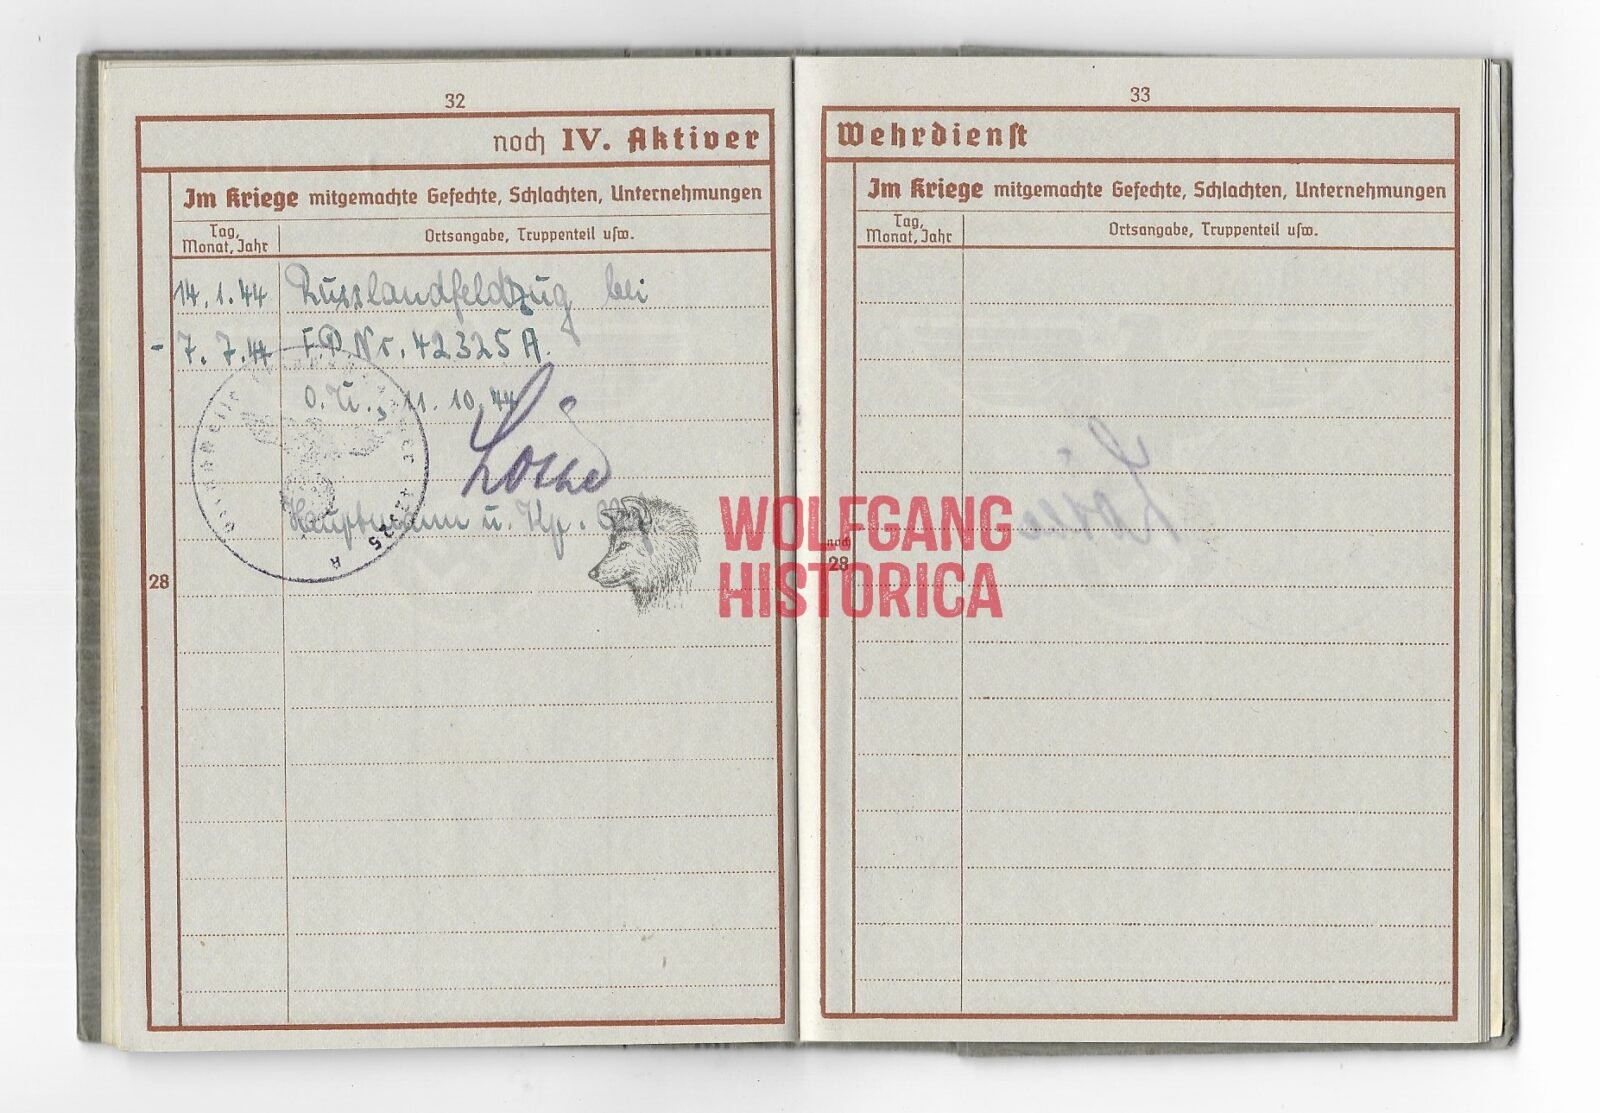 32
noch IV. Aktiver
Im Kriege mitgemachte Gefechte, Schlachten, Unternehmungen
Tag, Monat, Jahr
Ortsangabe, Truppenteil usw.
14.1.44 Russlandfeldzug bei
- 7.7.44 FP Nr. 42325 A.
O.U., 11.10.44
Hauptmann u. Kp.
A 42325
28
33
Wehrdienst
Im Kriege mitgemachte Gefechte, Schlachten, Unternehmungen
Tag, Monat, Jahr
Ortsangabe, Truppenteil usw.
noch 28
WOLFGANG
HISTORICA